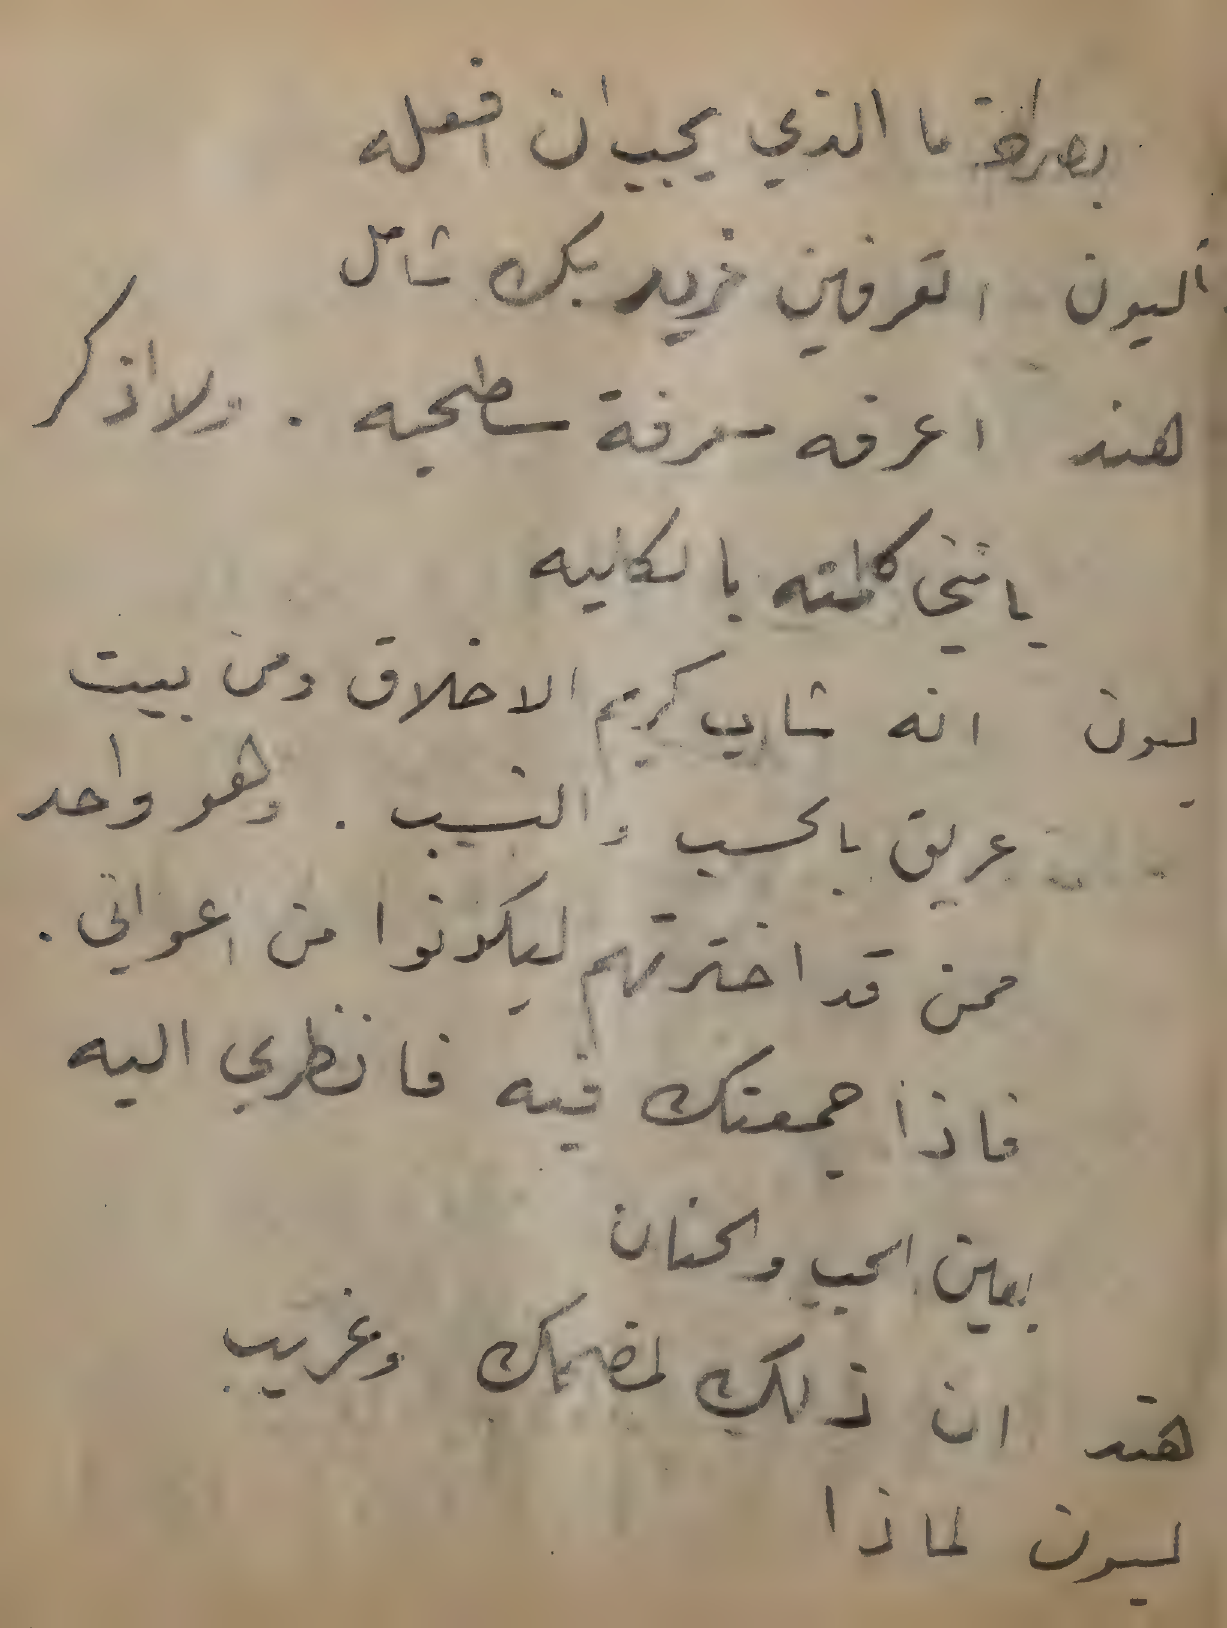 بصراحة ما الذي يجب ان افعله
ليون اتعرفين فريد بك شامل
هند اعرفه معرفة سطحيه . ولا اذكر
بانني كلمته بالكليه
ليون انه شاب كريم الاخلاق ومن بيت
عريق بالحسب والنسب . وهو واحد
ممن قد اخترتهم ليكونوا من اعواني .
فاذا جمعتك فيه فانظري اليه
بعين الحب والحنان
هند ان ذلك لمضحك وغريب
ليون لماذا